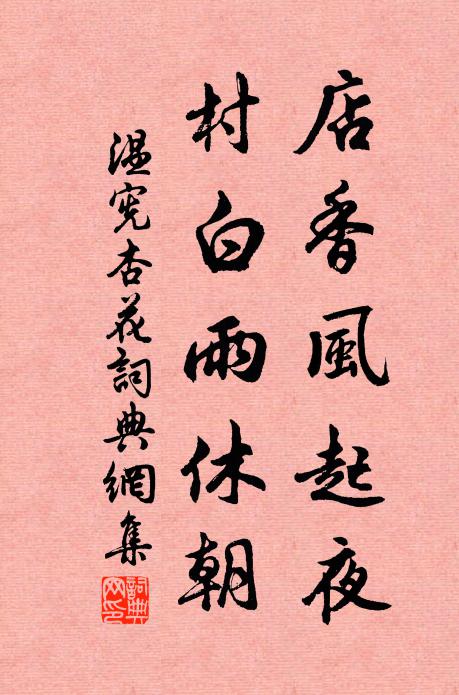 店香風起夜
村白雨休朝
温宪杏花詞典網集
詞典網印